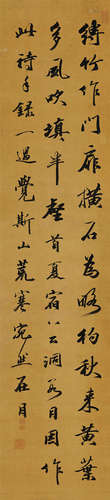 縳竹作門扉橫石為略彴秋來黃葉
多風吹填半壑首夏宿谷洞數日因作
此詩手錄一過覺斯山荒寒宛然在目